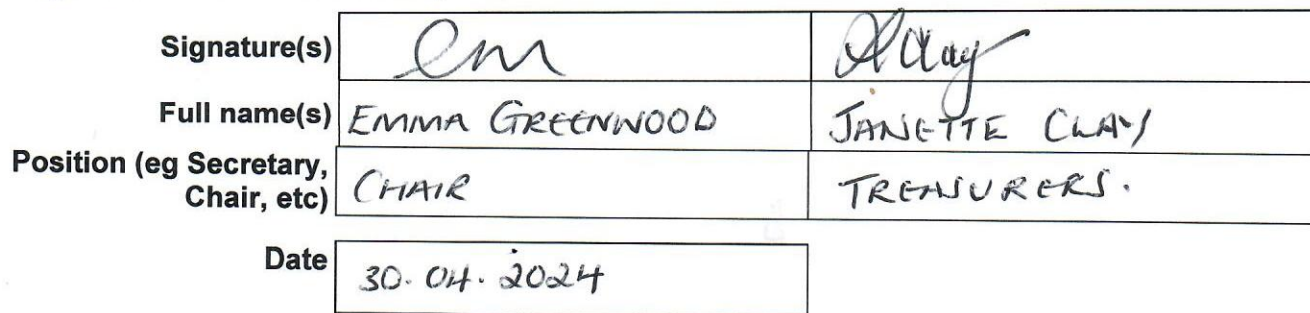 Signature(s)
Full name(s) EMMA GREENWOOD JANETTE CLAY
Position (eg Secretary,
Chair, etc) CHAIR TREASURERS.
Date 30.04.2024